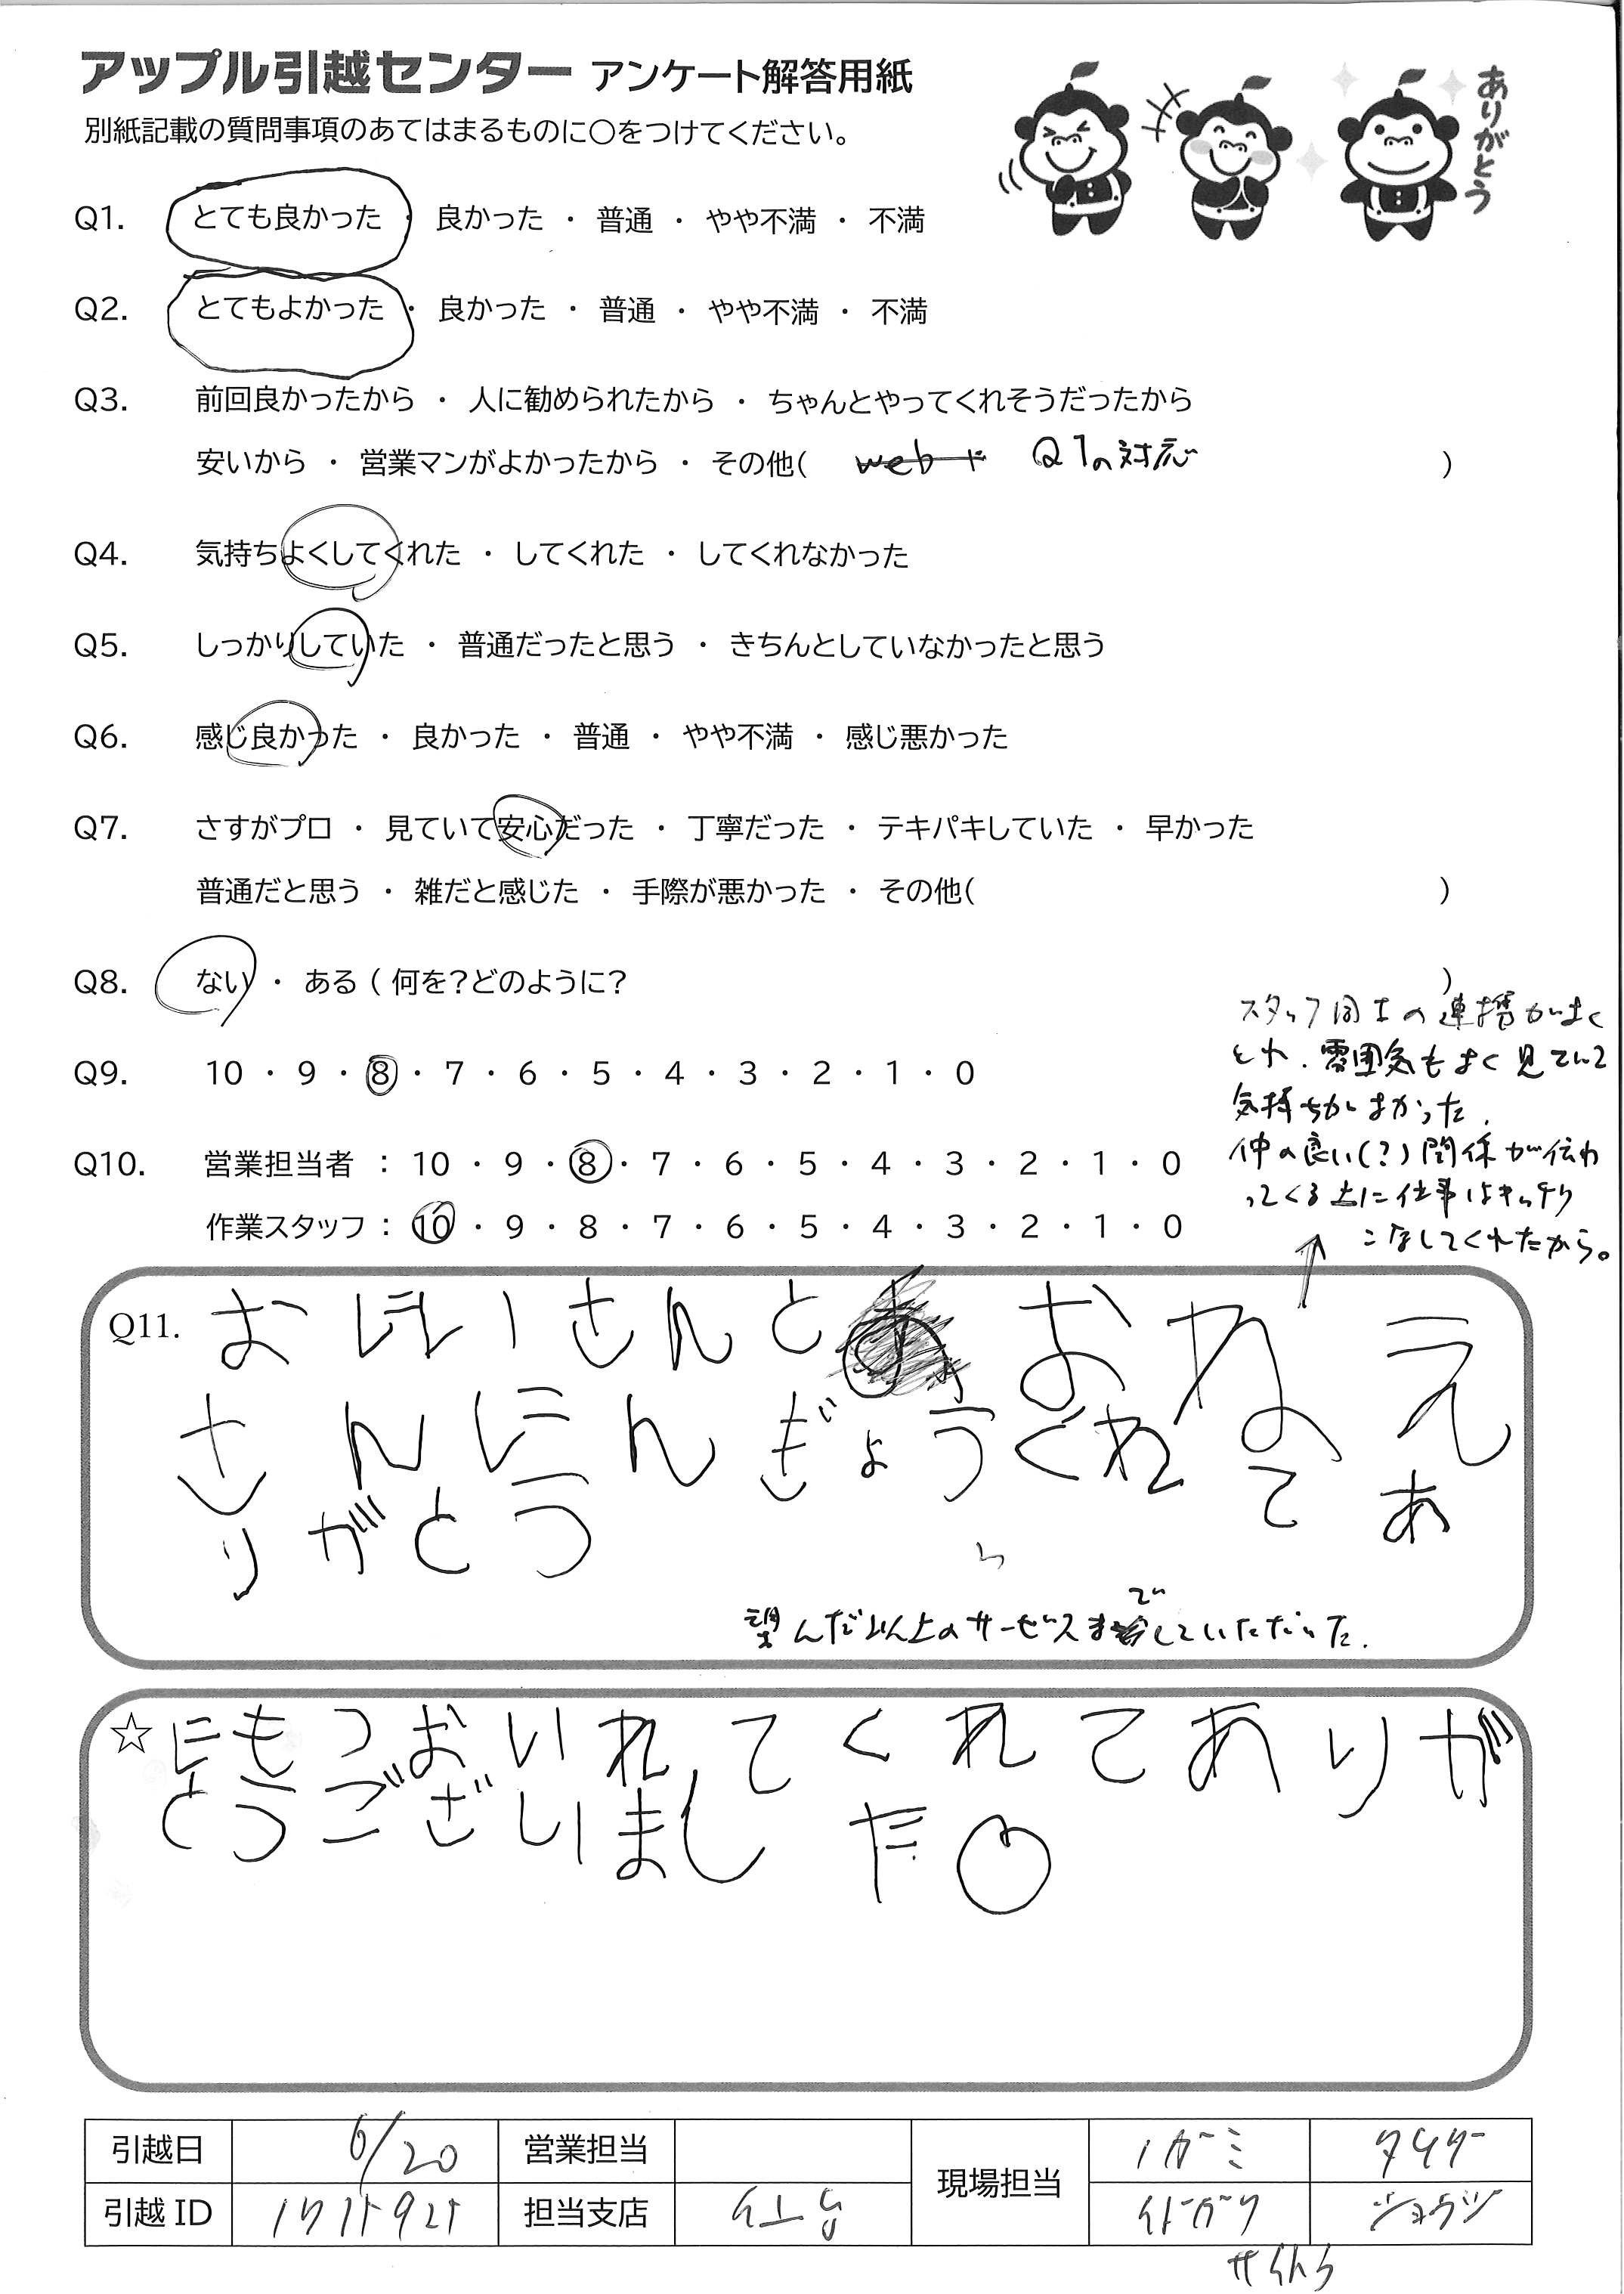 アップル引越センター アンケート解答用紙
ありがとう
別紙記載の質問事項のあてはまるものに○をつけてください。
Q1. とても良かった ・ 良かった ・ 普通 ・ やや不満 ・ 不満
Q2. とてもよかった ・ 良かった ・ 普通 ・ やや不満 ・ 不満
Q3. 前回良かったから ・ 人に勧められたから ・ ちゃんとやってくれそうだったから
安いから ・ 営業マンがよかったから ・ その他( web Q1の対応 )
Q4. 気持ちよくしてくれた ・ してくれた ・ してくれなかった
Q5. しっかりしていた ・ 普通だったと思う ・ きちんとしていなかったと思う
Q6. 感じ良かった ・ 良かった ・ 普通 ・ やや不満 ・ 感じ悪かった
Q7. さすがプロ ・ 見ていて安心だった ・ 丁寧だった ・ テキパキしていた ・ 早かった
普通だと思う ・ 雑だと感じた ・ 手際が悪かった ・ その他( )
Q8. ない ・ ある ( 何を?どのように? )
Q9. 10 ・ 9 ・ 8 ・ 7 ・ 6 ・ 5 ・ 4 ・ 3 ・ 2 ・ 1 ・ 0
Q10. 営業担当者 : 10 ・ 9 ・ 8 ・ 7 ・ 6 ・ 5 ・ 4 ・ 3 ・ 2 ・ 1 ・ 0
作業スタッフ : 10 ・ 9 ・ 8 ・ 7 ・ 6 ・ 5 ・ 4 ・ 3 ・ 2 ・ 1 ・ 0
スタッフ同士の連携がよく
とれ、雰囲気もよく見ていて
気持ちがよかった。
仲の良い(?)関係が伝わ
ってくる上に仕事はキッチリ
こなしてくれたから。
Q11. おにいさんと おねえ
さんにんぎょうくれてあ
りがとう
望んだ以上のサービスまでしていただいた。
☆ にもつおいれてくれてありが
とうございました。
引越日 6/20 営業担当 現場担当 ノガミ
引越ID 担当支店 仙台